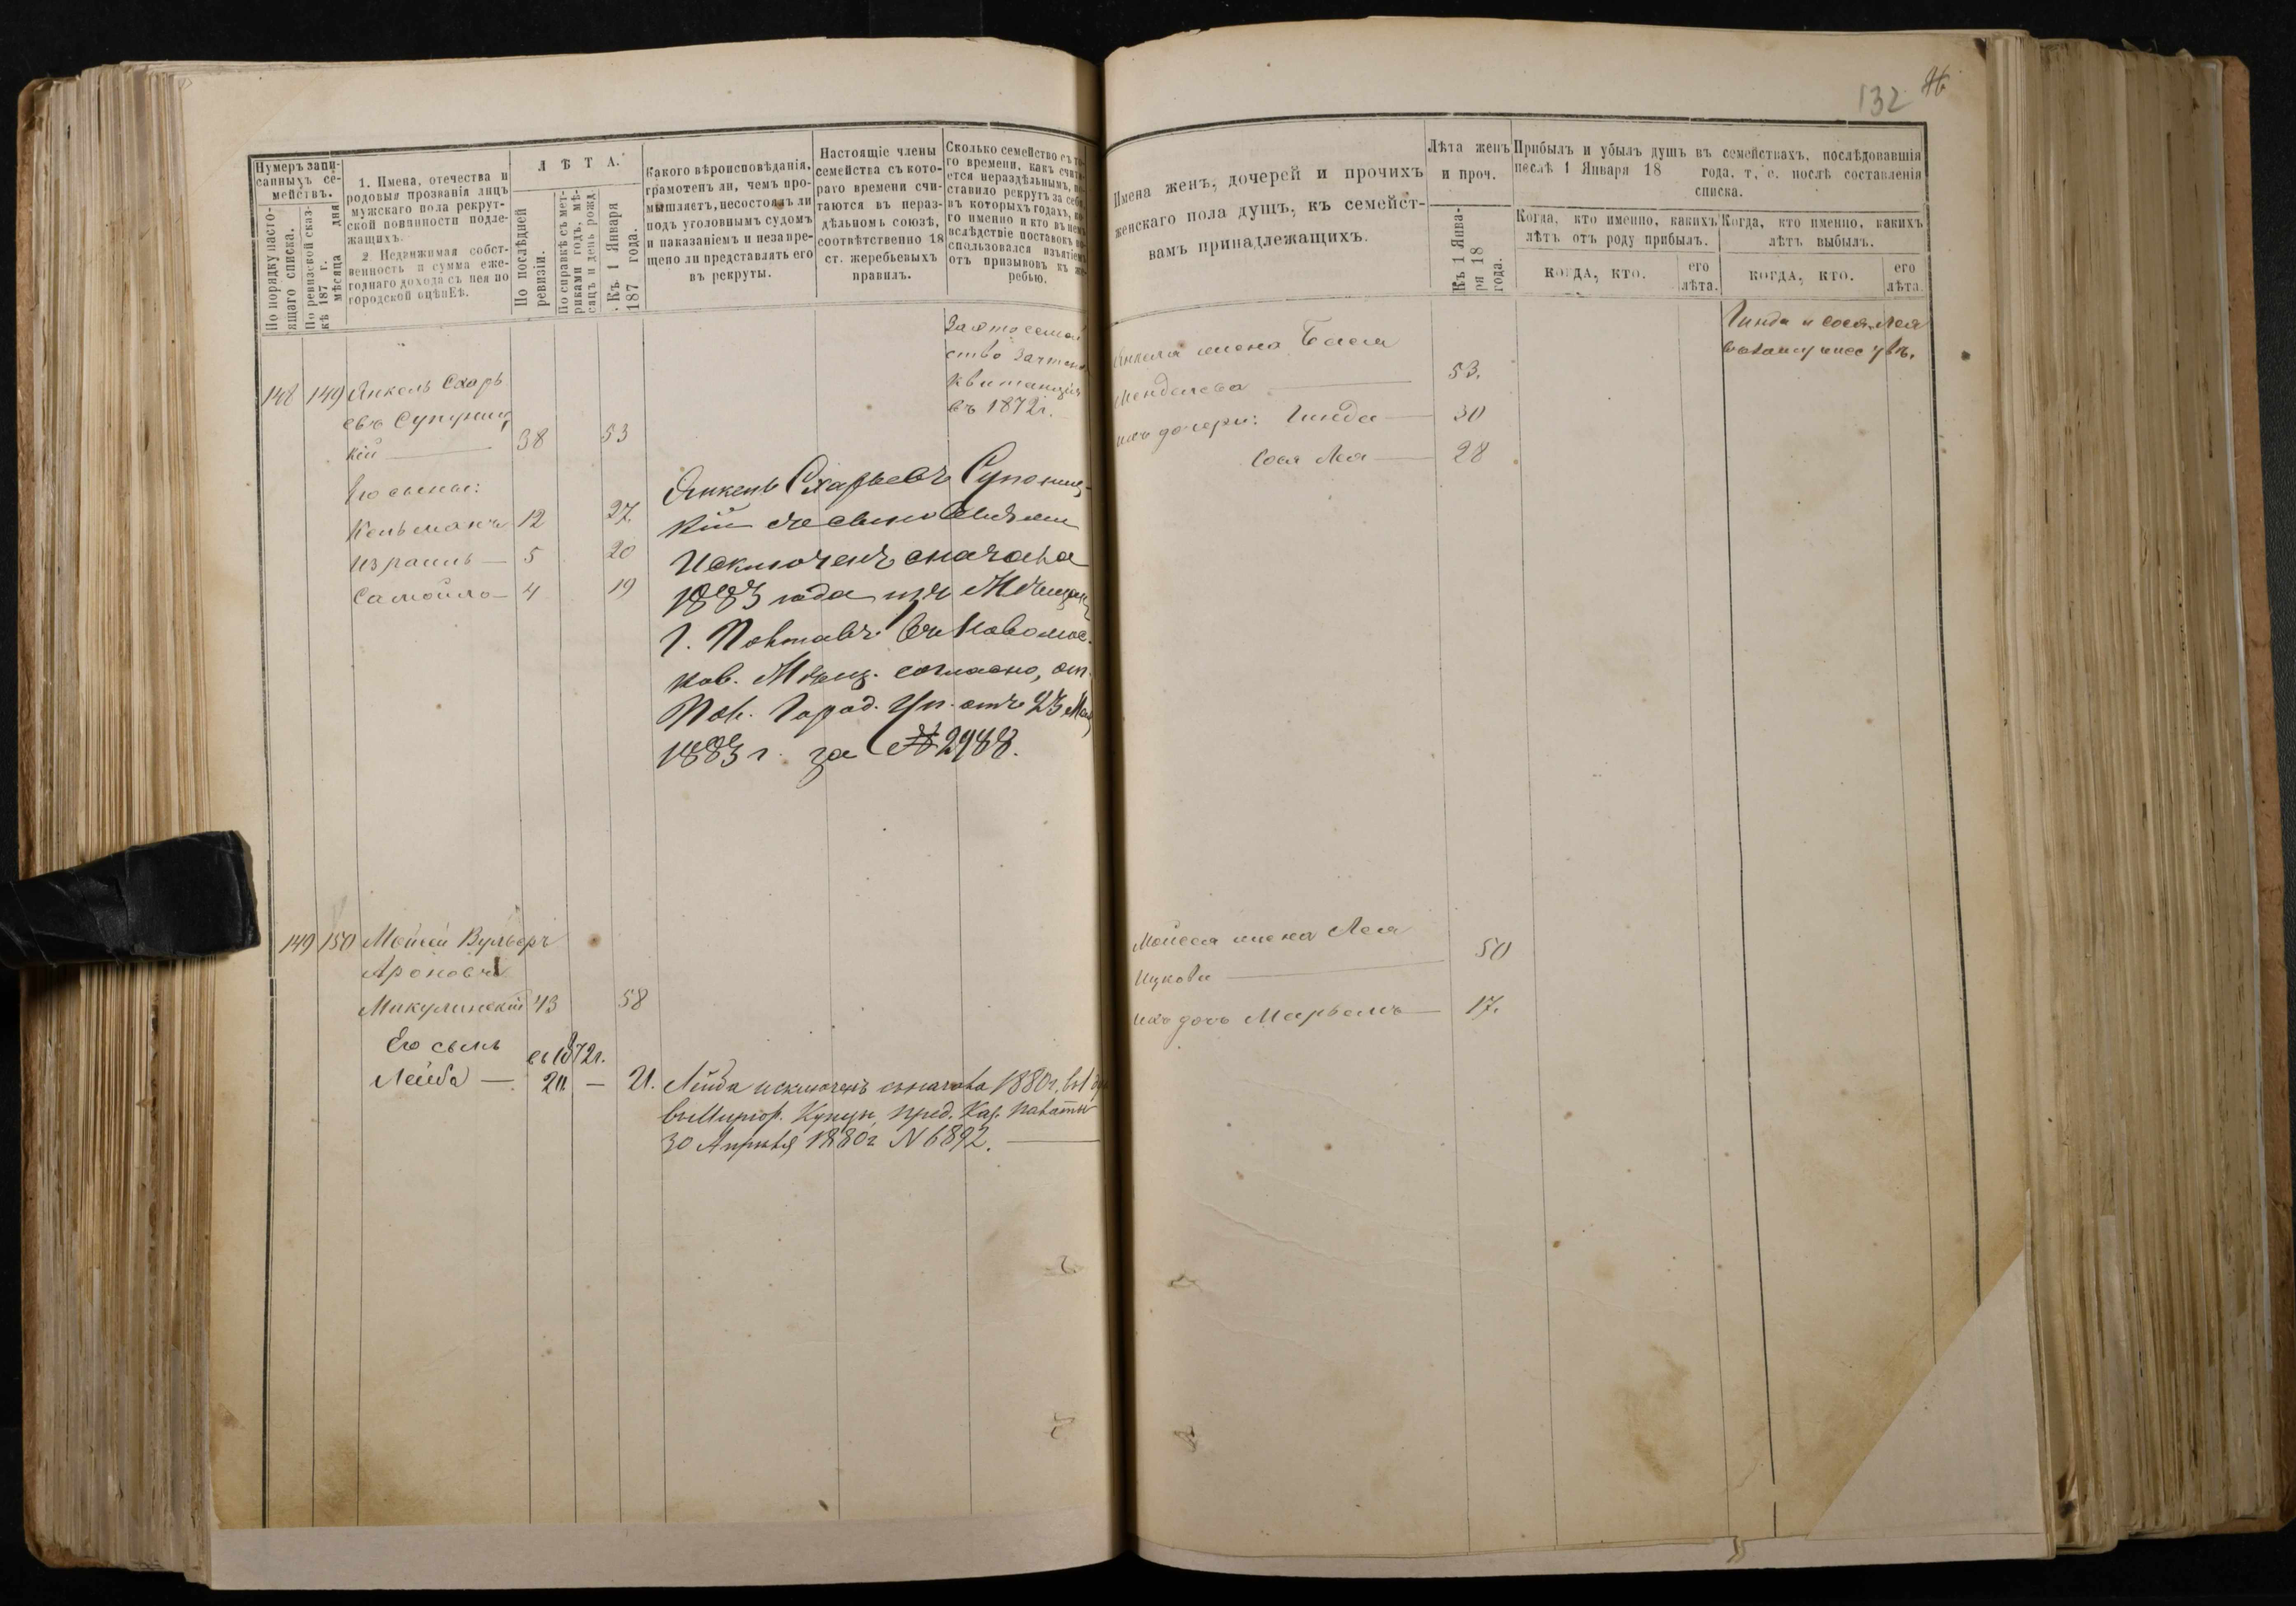 132 46
Нумеръ запи-
санныхъ се-
мействъ.
По порядку насто-
ящаго списка.
По ревизской сказ-
кѣ 187 г.
мѣсяца дня
1. Имена, отечества и
родовыя прозванія лицъ
мужскаго пола рекрут-
ской повинности подле-
жащихъ.
2. Недвижимая собст-
венность и сумма еже-
годнаго дохода съ нея по
городской оцѣнкѣ.
ЛѢТА.
По послѣдней
ревизіи.
По справкѣ съ мет-
риками годъ, мѣ-
сяцъ и день рожд.
Къ 1 Января
187 года.
Какого вѣроисповѣданія,
грамотенъ ли, чемъ про-
мышляетъ, несостоялъ ли
подъ уголовнымъ судомъ
и наказаніемъ и незапре-
щено ли представлять его
въ рекруты.
Настоящіе члены
семейства съ кото-
раго времени счи-
таются въ нераз-
дѣльномъ союзѣ,
соотвѣтственно 18
ст. жеребьевыхъ
правилъ.
Сколько семейство съ то-
го времени, какъ счита-
ется нераздѣльнымъ, по-
ставило рекрутъ за себя,
въ которыхъ годахъ, ко-
го именно и кто въ немъ
вслѣдствіе поставокъ во-
спользовался изъятіемъ
отъ призывовъ къ же-
ребью.
За это семей
ство зачтена
квитанція
въ 1872 г.
148 149 Янкель Схарь
евъ Супониц
кій 38 53
Его сыновья:
Кельманъ 12 27.
Израиль 5 20
Самойло 4 19
Янкель Схарьевъ Супониц-
кій съ сыновьями
Исключенъ сначала
1883 года изъ Мѣщанъ
г. Полтавы въ Новомос-
ков. Мѣщ. согласно, отн.
Пол. Город. Уп. отъ 23 Мая
1883 г. за № 2988.
149 150 Мойсей Вульферъ
Ароновъ
Микулинскій 43 58
Его сынъ въ 1872 г.
Лейба — 20 — 21. Лейба исключенъ сначала 1880 г.
въ Миргор. Купцы, пред. Каз. Палаты
30 Апрѣля 1880 г. N 6892.
Имена женъ, дочерей и прочихъ
женскаго пола душъ, къ семейст-
вамъ принадлежащихъ.
Лѣта женъ
и проч.
Къ 1 Янва-
ря 18
года.
Прибылъ и убылъ душъ въ семействахъ, послѣдовавшія
послѣ 1 Января 18 года, т. е. послѣ составленія
списка.
Когда, кто именно, какихъ
лѣтъ отъ роду прибылъ.
КОГДА, КТО. его
лѣта.
Когда, кто именно, какихъ
лѣтъ выбылъ.
КОГДА, КТО. его
лѣта.
Гинда и Сося Лея
Янкеля жена Басся
Менделева 53.
ихъ дочери: Гинда 30
Сося Лея 28
Мойсея жена Лея
Ицкова 50
ихъ дочь Марьямъ 17.